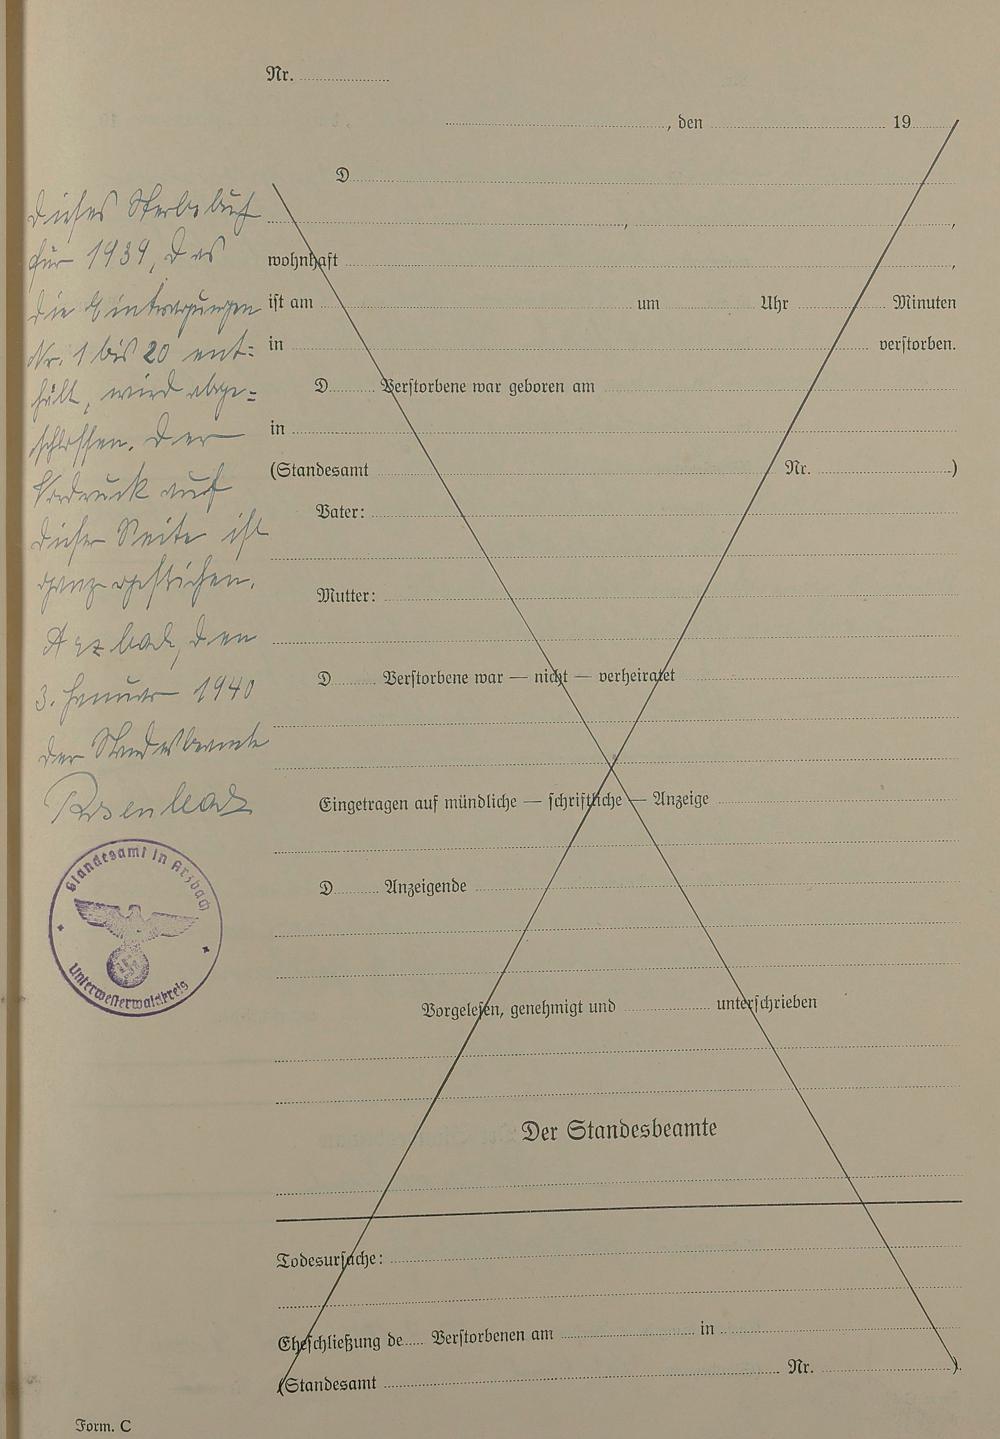 Nr.
, den 19
D
,
,
wohnhaft ,
ist am um Uhr Minuten
in verstorben.
D Verstorbene war geboren am
in
(Standesamt Nr. )
Vater:
Mutter:
D Verstorbene war — nicht — verheiratet
Eingetragen auf mündliche — schriftliche — Anzeige
D Anzeigende
Vorgelesen, genehmigt und unterschrieben
Der Standesbeamte
Todesursache:
Eheschließung de Verstorbenen am in
(Standesamt Nr. )
Form. C
Dieses Sterbebuch
für 1939, das
die Eintragungen
Nr. 1 bis 20 ent=
hält, wird abge=
schlossen. Der
Vordruck auf
dieser Seite ist
ganz gestrichen.
Arzbach, den
3. Januar 1940
Der Standesbeamte
Standesamt in Arzbach
Unterwesterwaldkreis